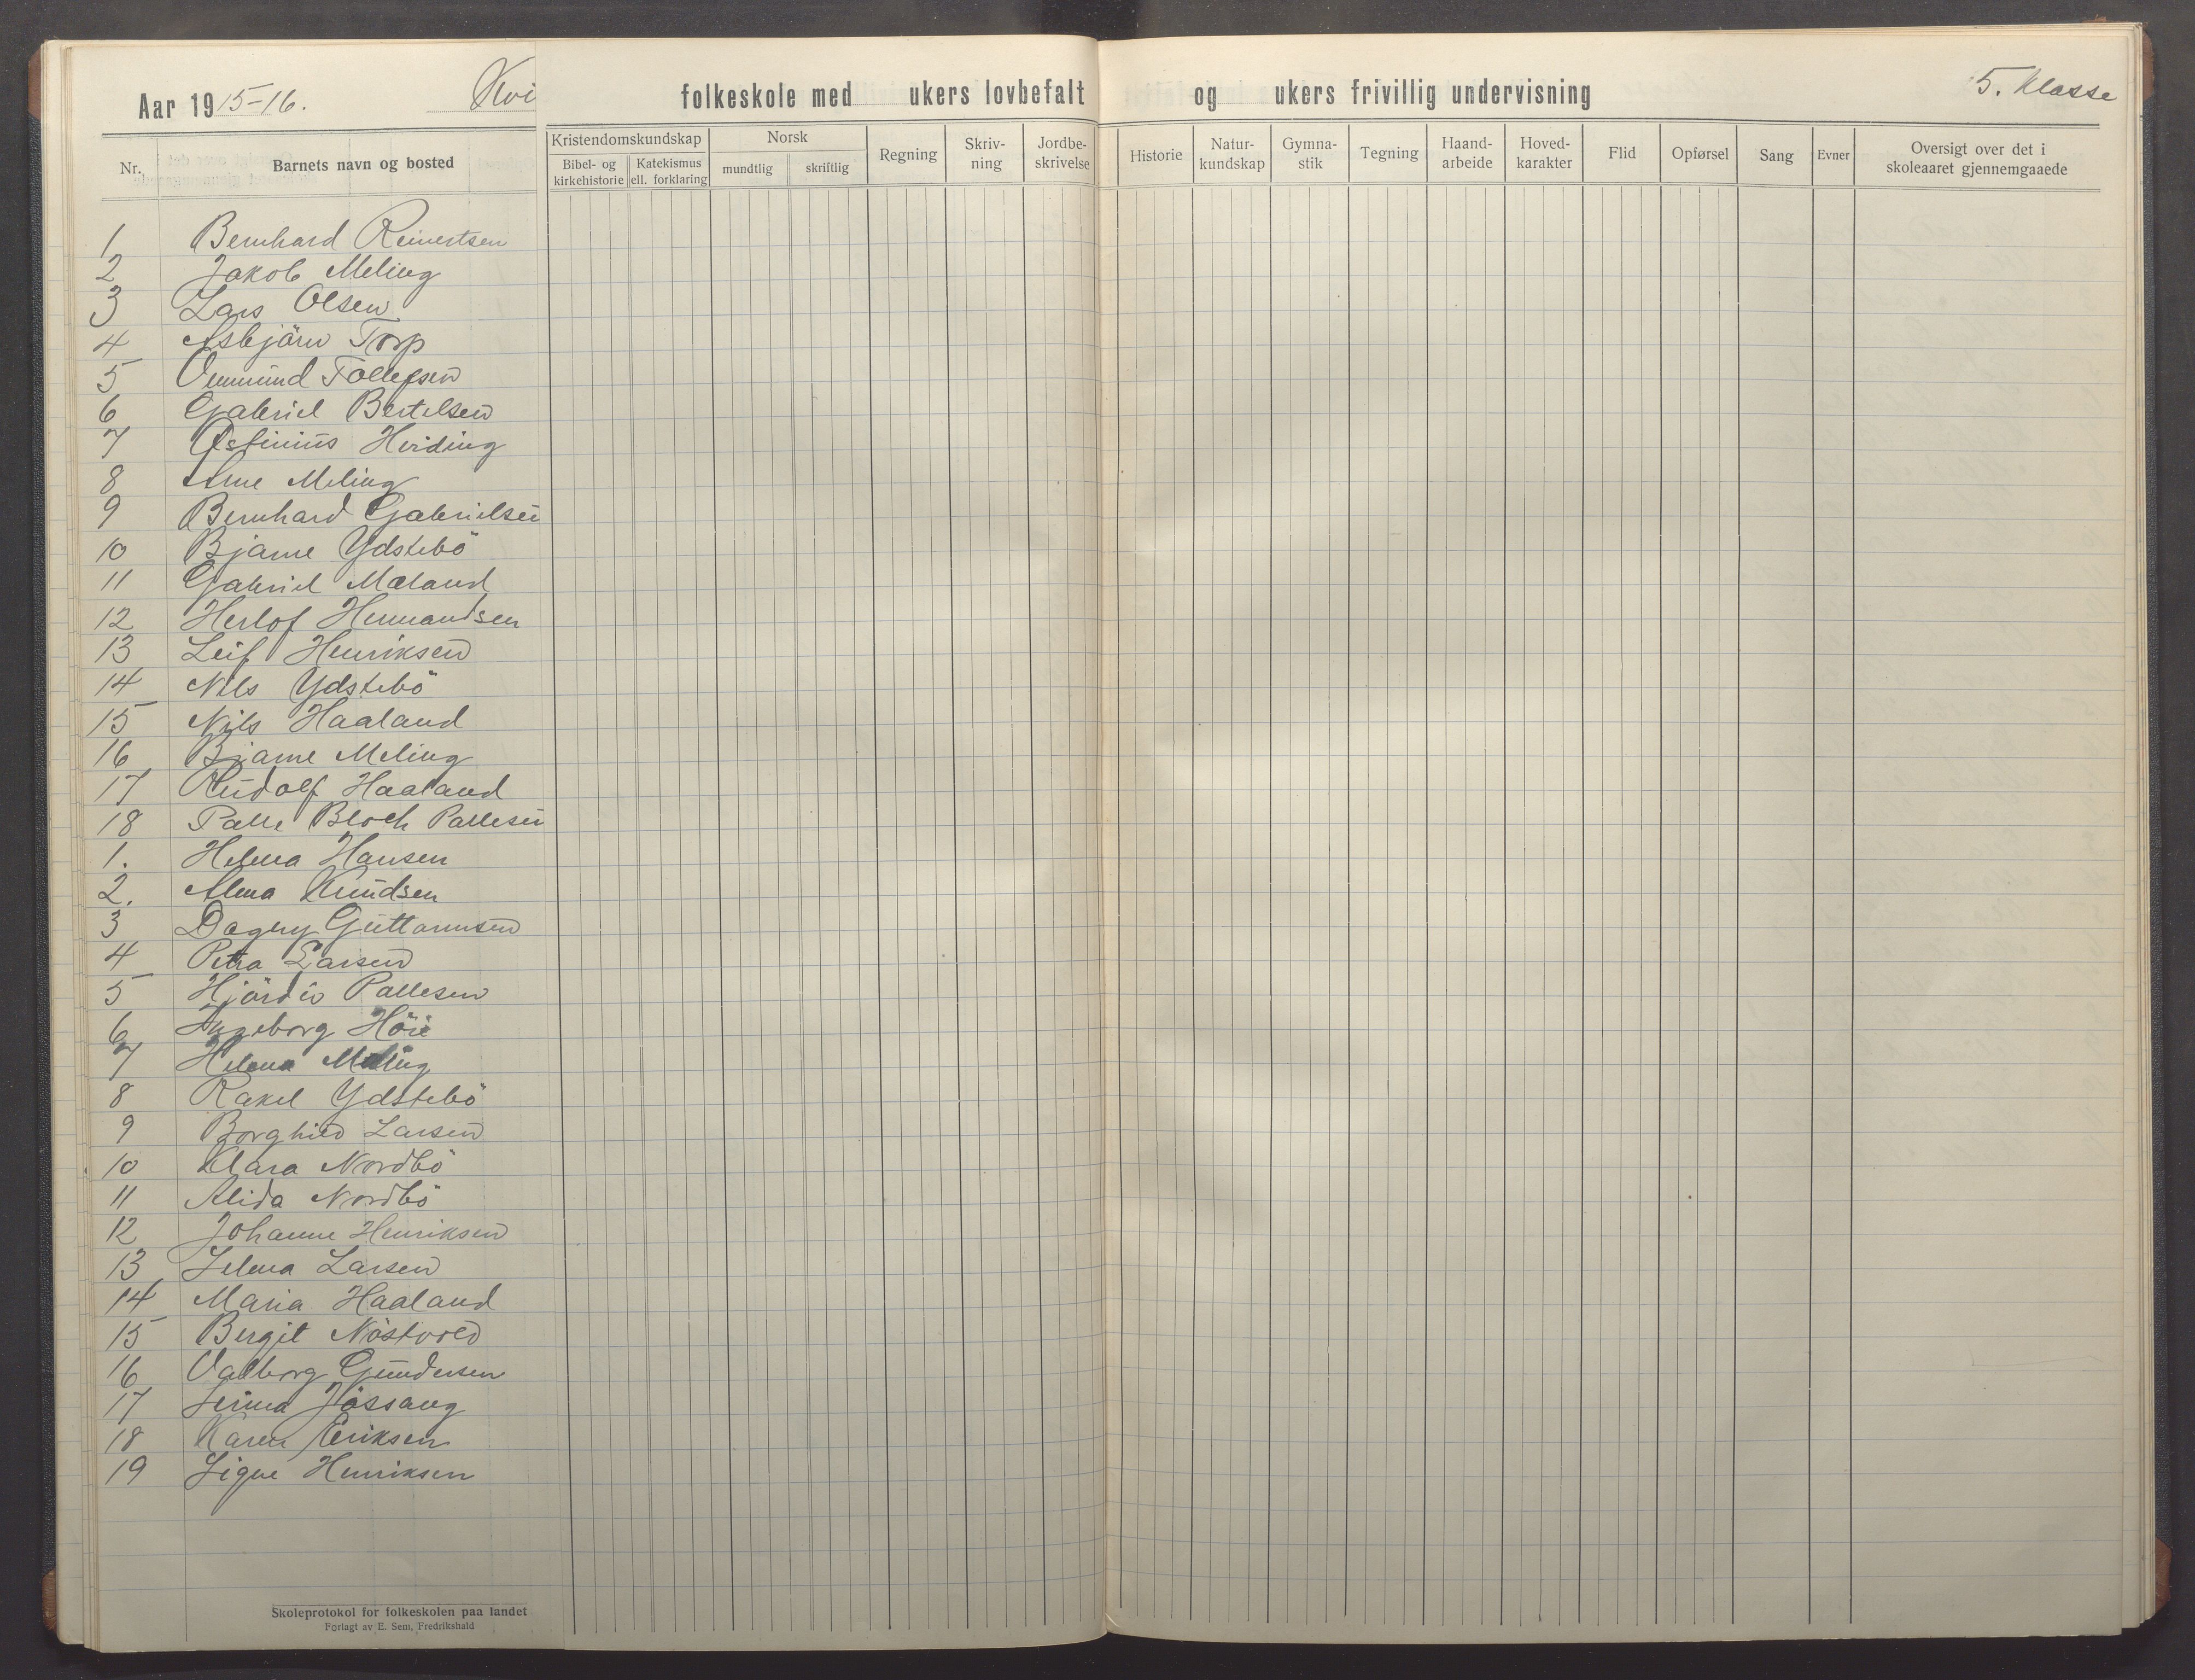 Aar 1915-16. Kvi folkeskole med ukers lovbefalt og ukers frivillig undervisning 5. Klasse
Nr. Barnets navn og bosted Kristendomskundskap Bibel- og kirkehistorie Katekismus ell. forklaring Norsk mundtlig skriftlig Regning Skriv-ning Jordbe-skrivelse Historie Natur-kundskap Gymna-stik Tegning Haand-arbeide Hoved-karakter Flid Opførsel Sang Evner Oversigt over det i skoleaaret gjennemgaaede
1 Bernhard Reinertsen
2 Jakob Meling
3 Lars Olsen
4 Asbjörn Torp
5 Vemund Tollefsen
6 Gabriel Bertelsen
7 Østinius Hviding
8 Arne Meling
9 Bernhard Gabrielsen
10 Bjarne Ydstebö
11 Gabriel Mæland
12 Herlof Hermandsen
13 Leif Henriksen
14 Nils Ydstebö
15 Nils Haaland
16 Bjarne Meling
17 Rudolf Haaland
18 Palle Bloch Pallesen
1. Helena Hansen
2. Alma Knudsen
3 Dagny Guttormsen
4 Petra Larsen
5 Hjördis Pallesen
6 Ingeborg Höie
7 Helena Meling
8 Rakel Ydstebö
9 Borghild Larsen
10 Klara Nordbö
11 Alida Nordbö
12 Johanne Henriksen
13 Selma Larsen
14 Maria Haaland
15 Bergit Nöstvold
16 Valborg Gundersen
17 Serina Jössang
18 Karen Eriksen
19 Signe Henriksen
Skoleprotokol for folkeskolen paa landet
Forlagt av E. Sem, Fredrikshald